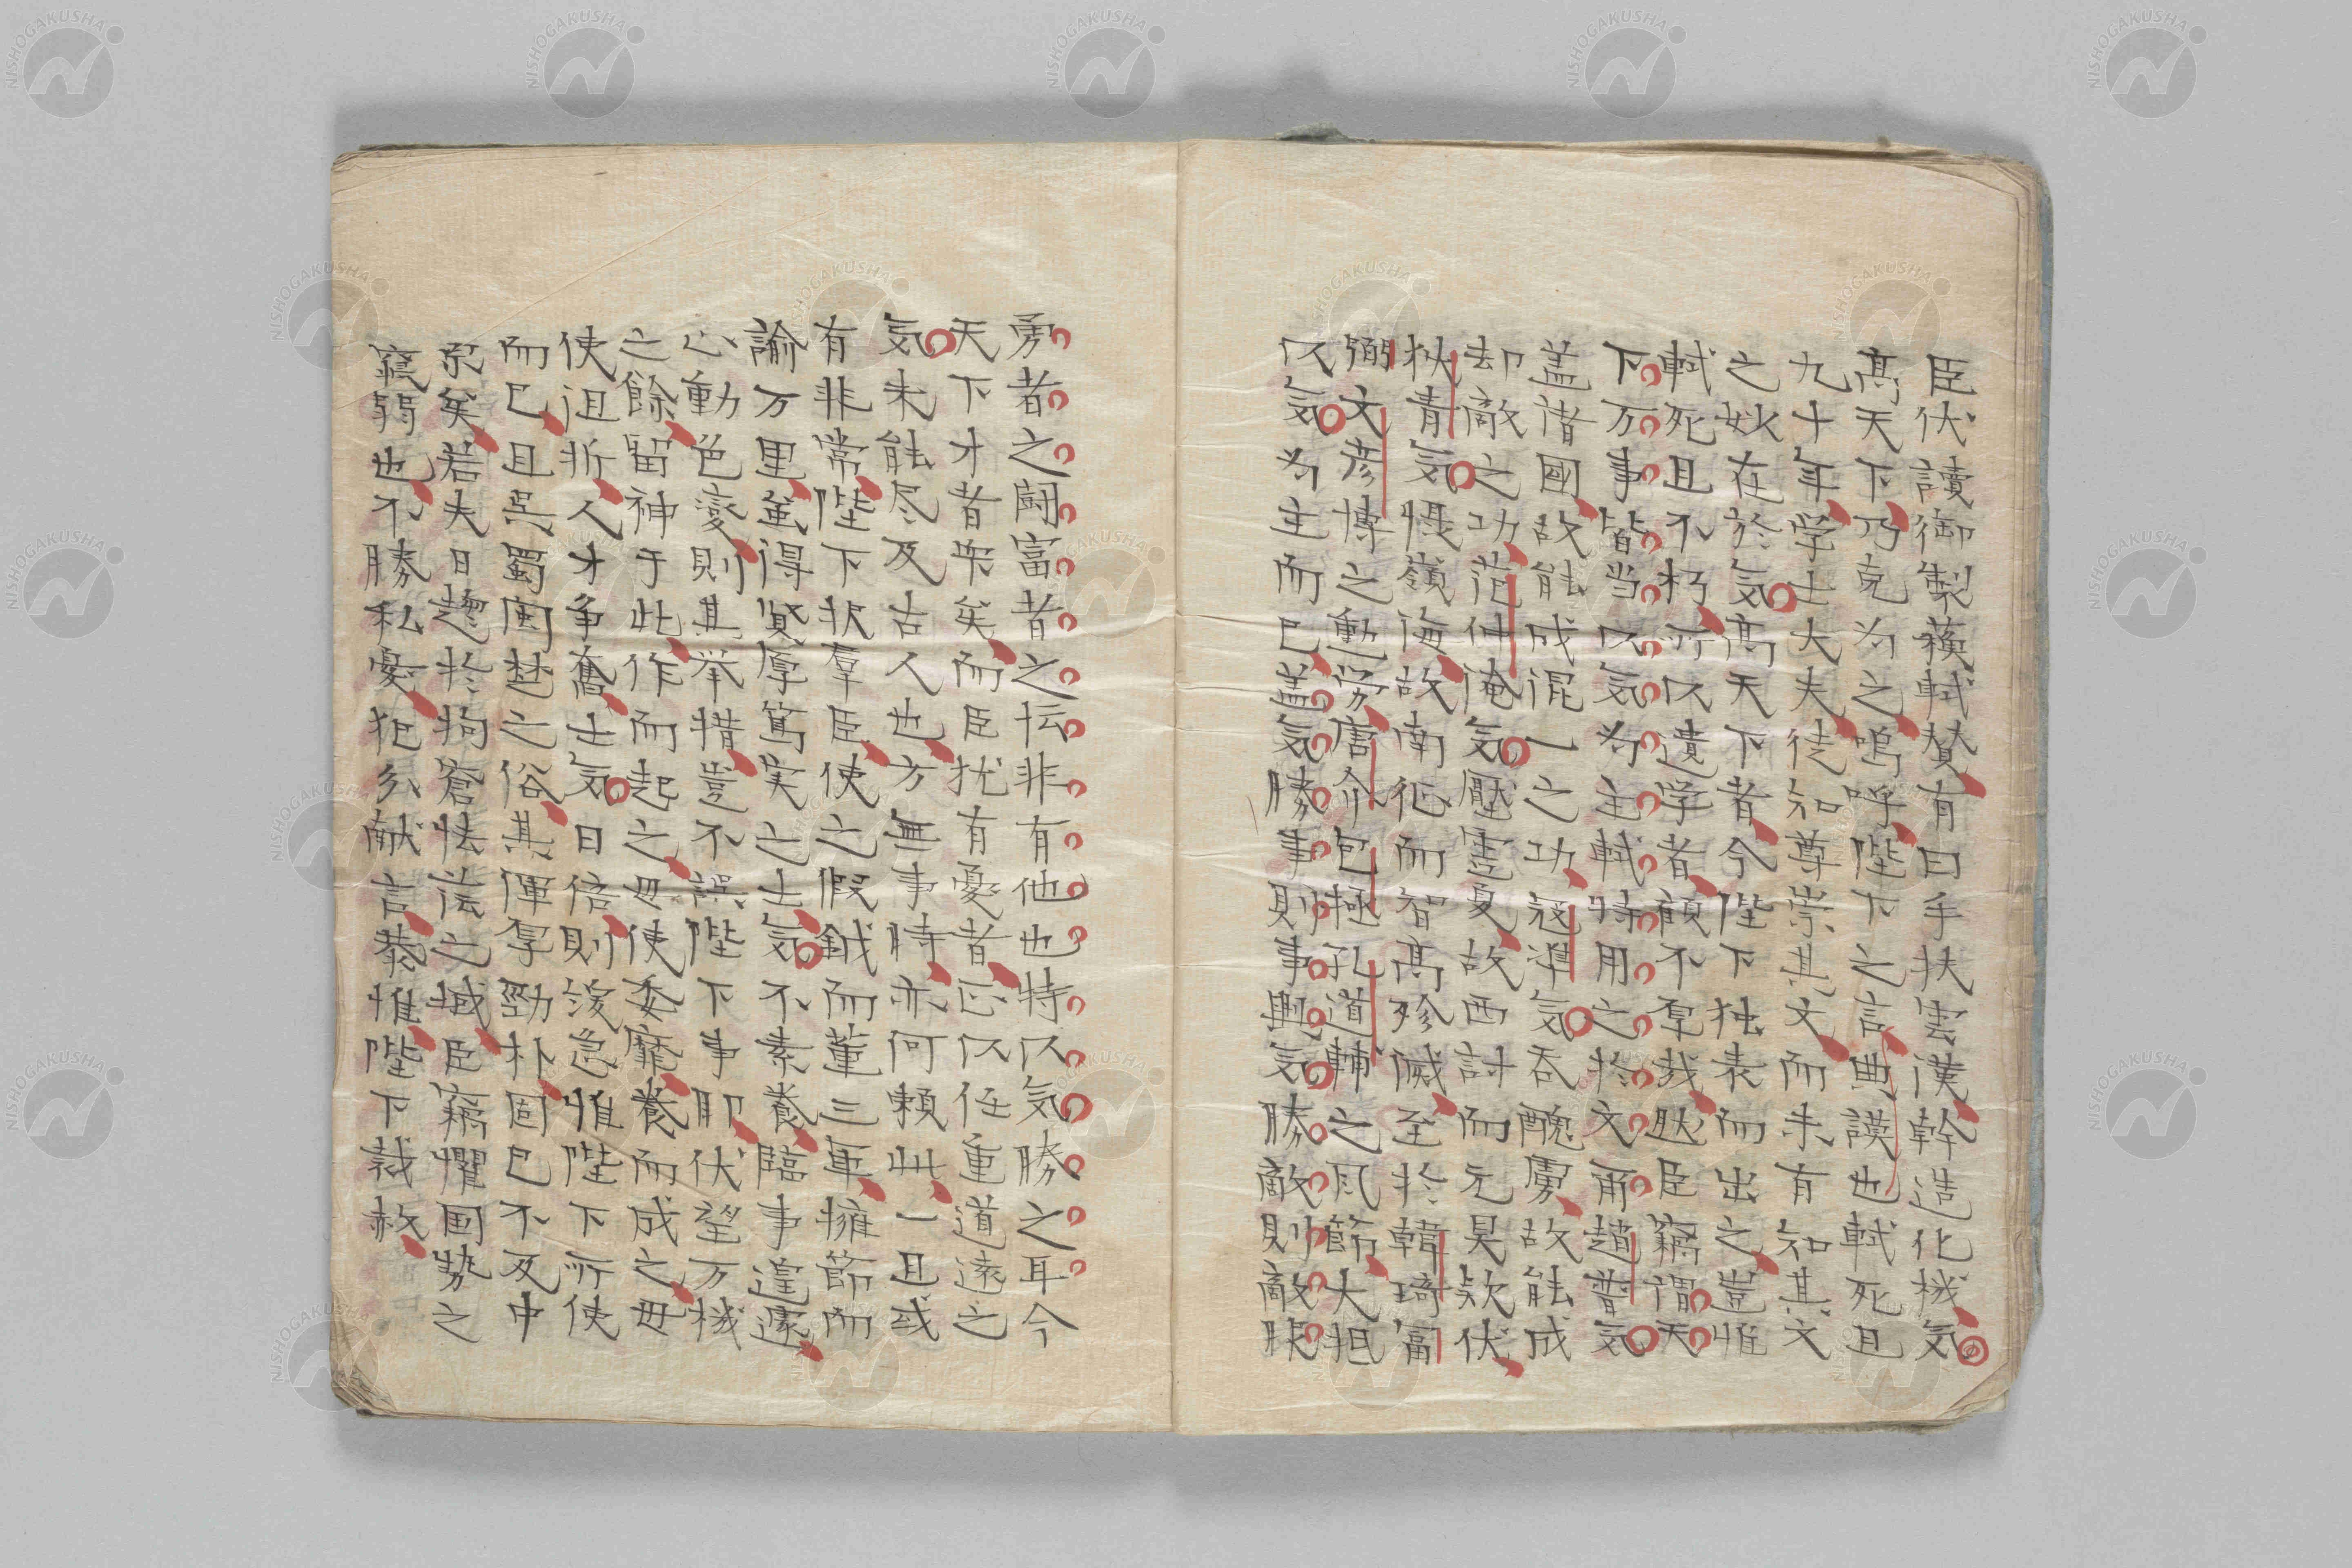 臣伏讀御製蘓軾賛有曰手抉雲漢幹造化機気
髙天下乃克为之嗚呼陛下之言典謨也軾死且
九十年学士大夫徒知尊崇其文而未有知其文
之妙在於気髙天下者今陛下独表而出之豈惟
軾死且不朽所以遺学者顧不厚哉然臣竊謂天
下万事皆当以気为主軾特用之於文爾趙普気
盖諸國故能成混一之功冦準気吞醜虜故能成
却敵之功范仲淹気壓霊夏故西討而元昊欵伏
狄青気懾嶺海故南征而智髙殄滅至於韓琦冨
弼文彦博之勳労唐介包拯孔道輔之风節大抵
以気为主而已盖気勝事則事舉気勝敵則敵服
勇者之闘富者之坛非有他也特以気勝之耳今
天下才者衆矣而臣犹有憂者正以任重道遠之
気未能尽及古人也方無事時亦何頼此一旦或
有非常陛下択羣臣使之假鉞而董三軍擁節而
諭万里虽得賢厚篤実之士気不素養臨事遑遽
心動色変則其举措豈不誤陛下事耶伏望万機
之餘留神于此作而起之毋使委靡養而成之毋
使沮折人才争奮士気日倍則緩急惟陛下所使
而已且呉蜀闽楚之俗其渾厚勁朴固已不及中
原矣若夫日趨於拘窘怯薾之域臣竊懼国勢之
寖弱也不勝私憂犯分献言恭惟陛下裁赦
NISHOGAKUSHA